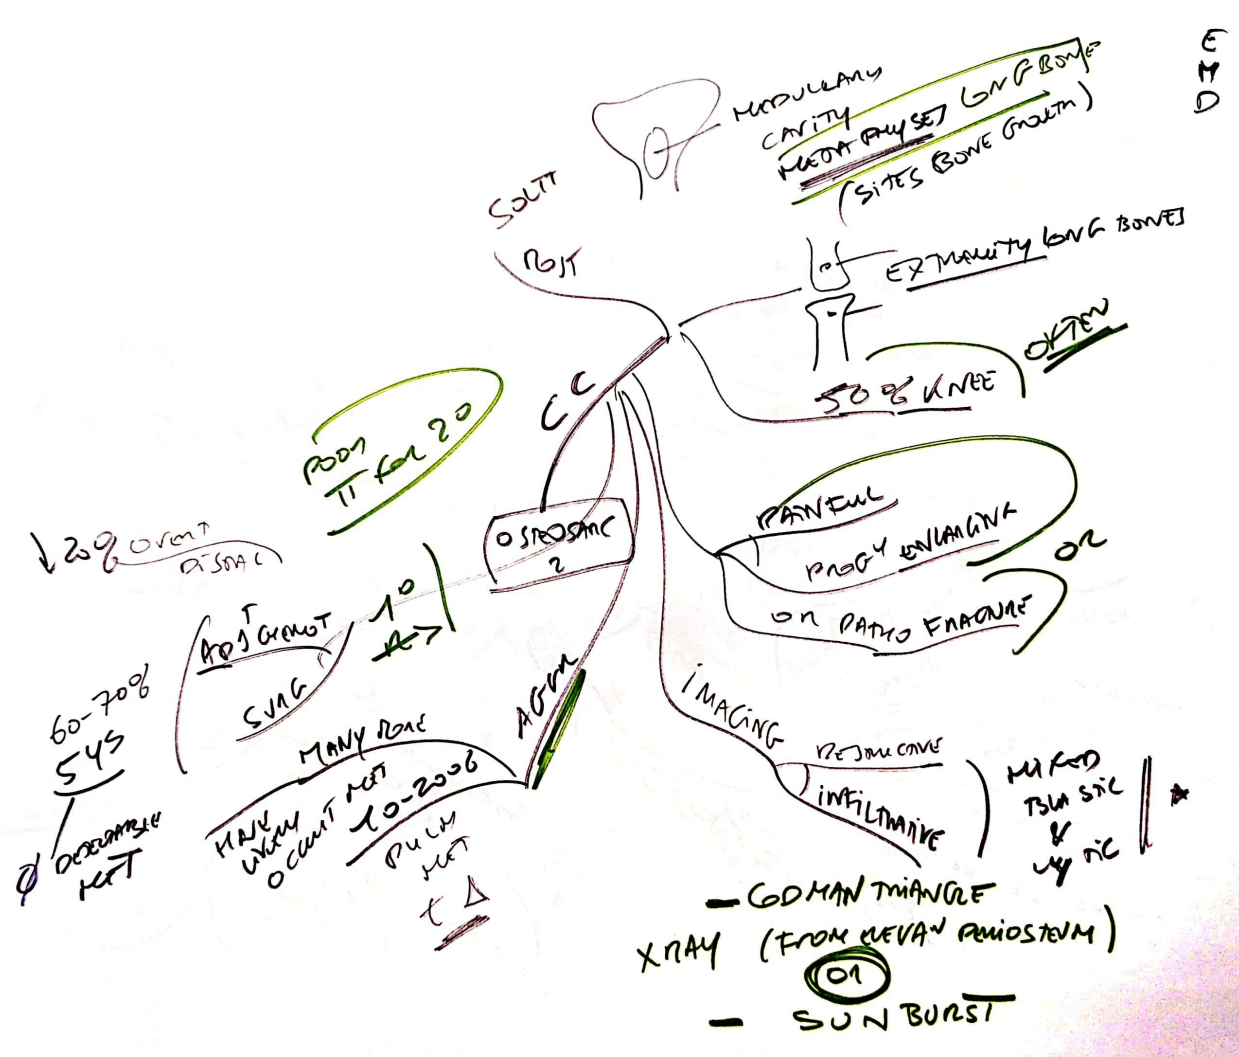 E
M
D
MEDULLARY
CAVITY
METAPHYSES LONG BONE
(SITES BONE GROWTH)
SOLIT
POST
EXTREMITY LONG BONES
OFTEN
50% KNEE
CC
POOR
TT FOR 20
OSTEOSARC
2
PAINFUL
PROGY ENLARGING
OR
OR PATHO FRACTURE
↓ 20% OVERT
DISTAL
10
ADJT CHEMOT
SURG
60-70%
5YS
Ø DETECTABLE
MET
AGGR
MANY MORE
10-20%
HAVE
OCCULT MET
PULM
MET
t Δ
IMAGING
DESTRUCTIVE
INFILTRATIVE
MIXED
BLASTIC
&
LYTIC
*
- CODMAN TRIANGLE
XRAY (FROM ELEVAN PERIOSTEUM)
OR
- SUNBURST